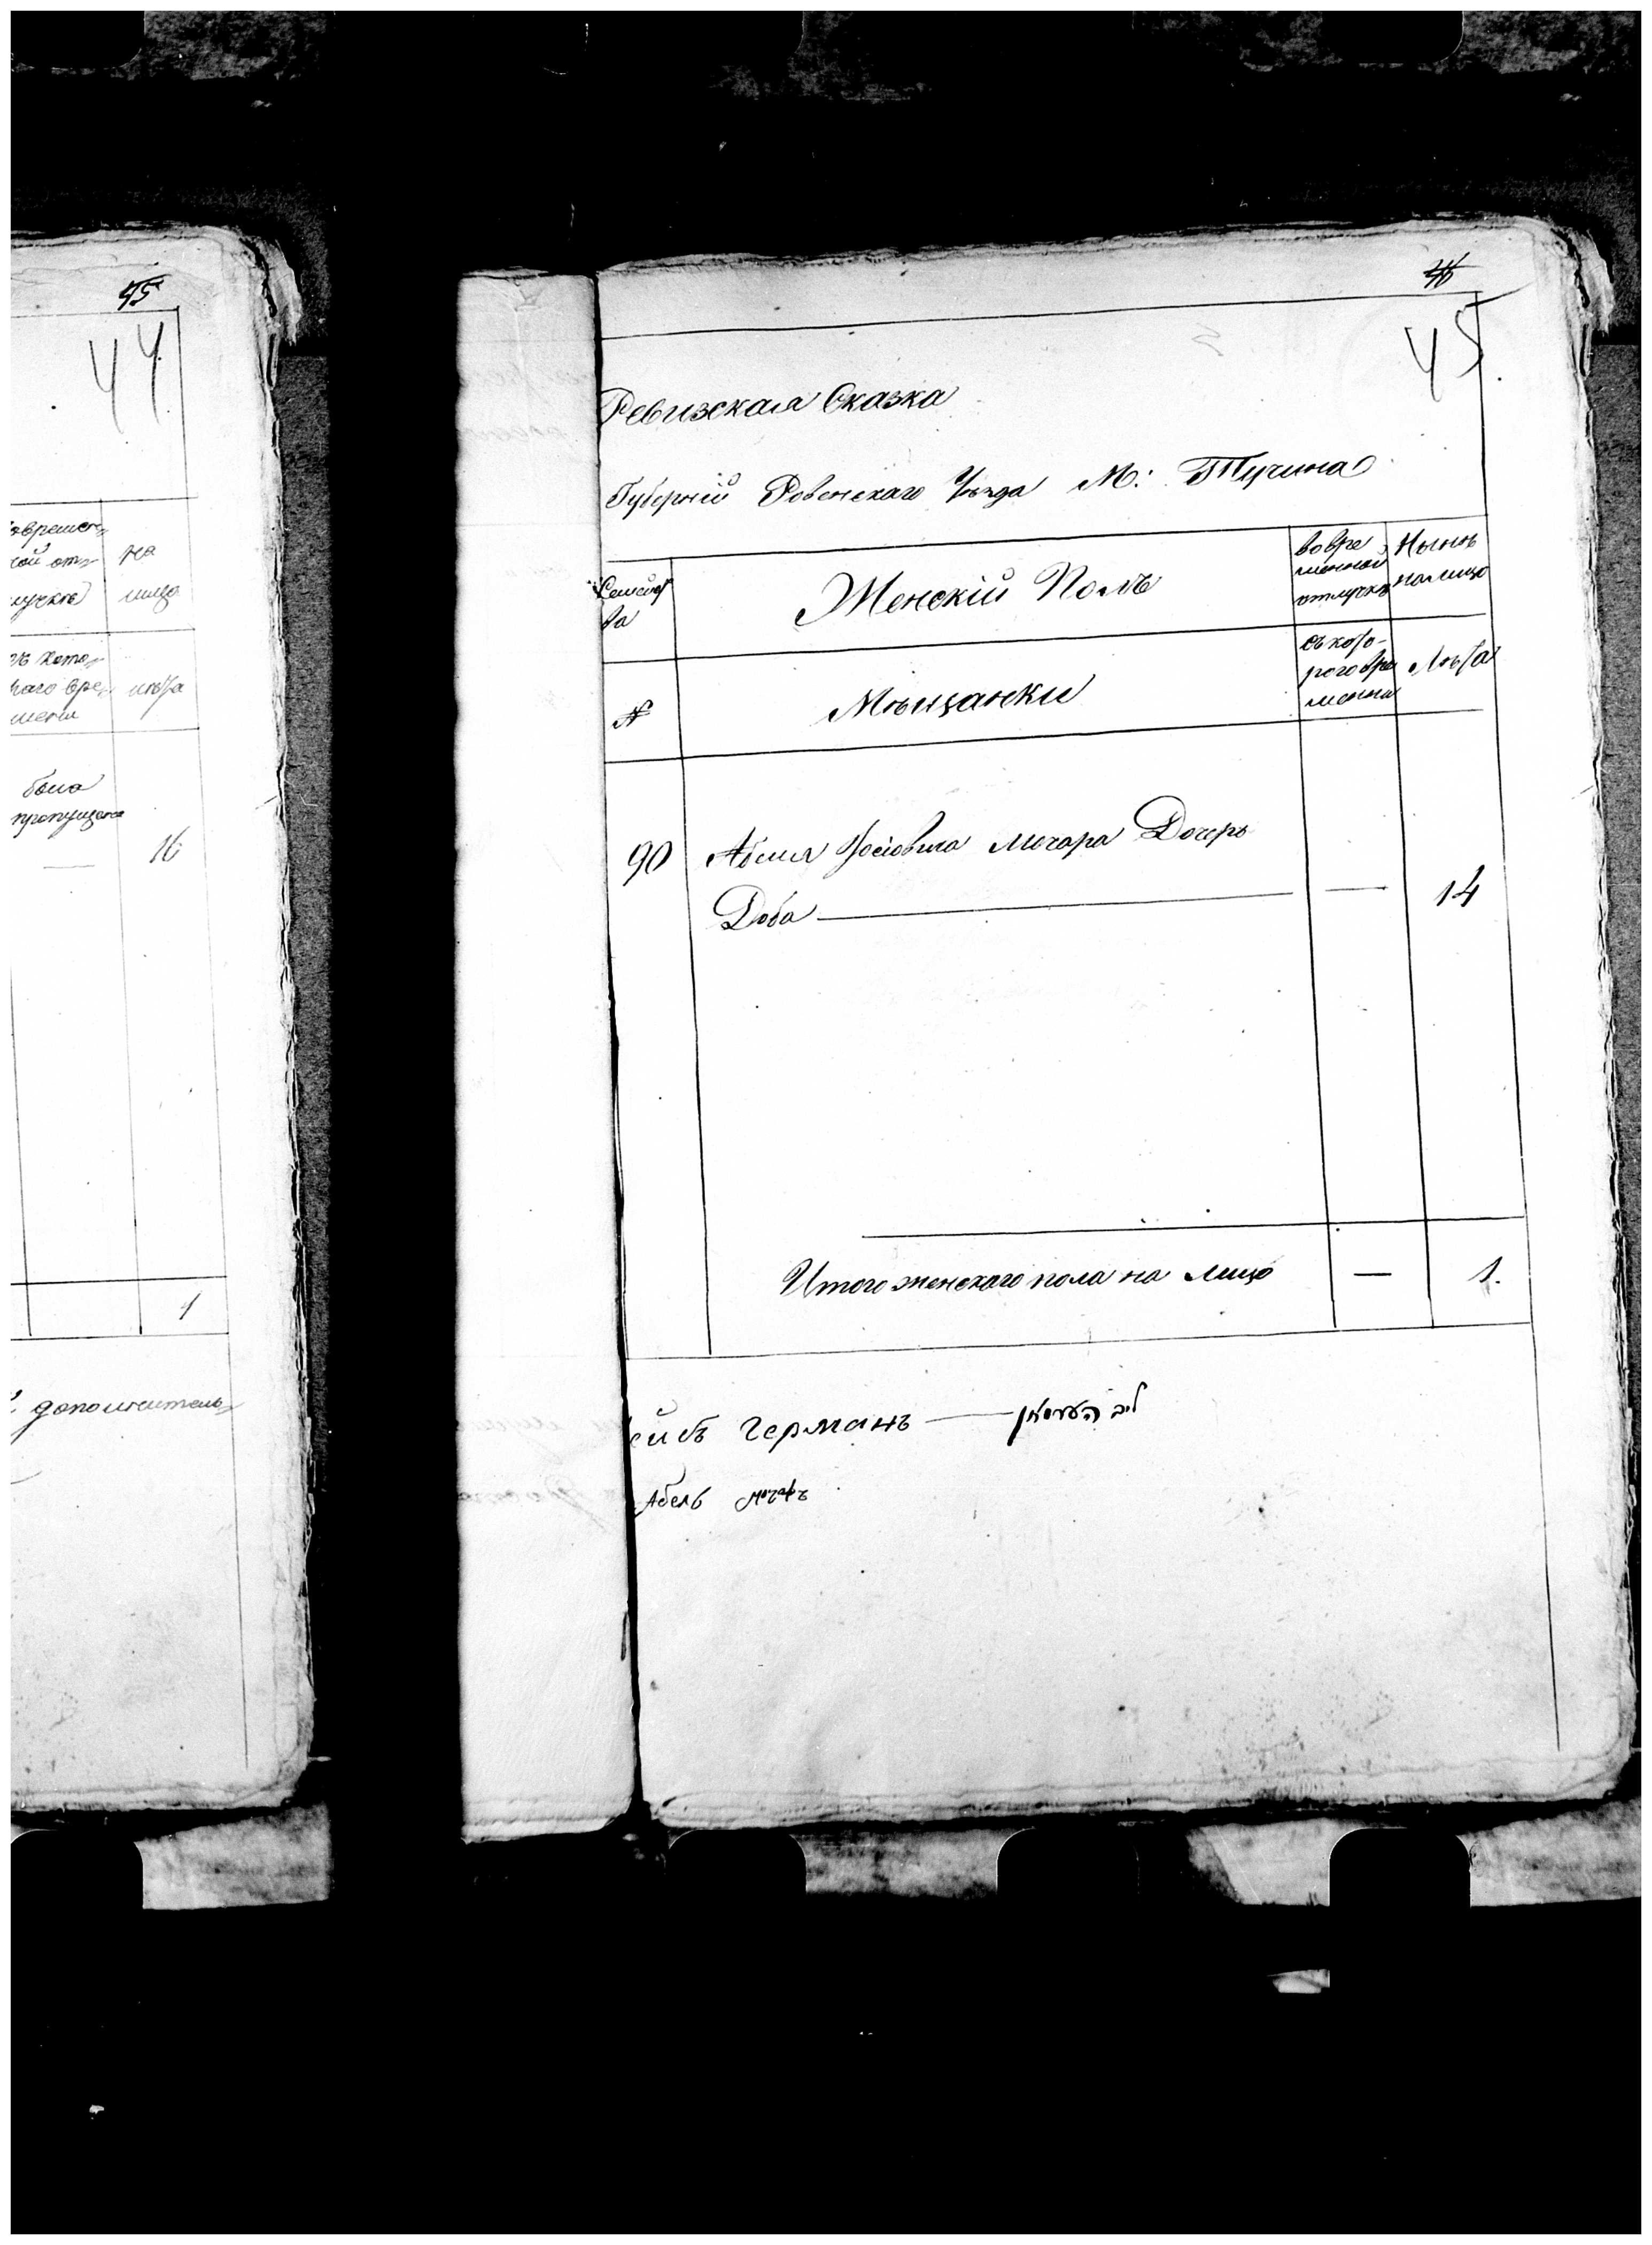 45
44
на
лицо
лѣта
была
пропущена
16
1
дополнитель-
46
45
Ревизская Сказка
Губерніи Ровенскаго Уѣзда М: Тучина
Семейства
Женскій Полъ
во вре
менной
отлучкѣ
Нынѣ
на лицо
№
Мѣщанки
съ кото-
рого вре
мени
Лѣта
90
Абеля Іосіовича Мочара Дочерь
Доба — — 14
Итого женскаго пола на лицо — 1.
ейбъ Германъ — ליב הערמאן
Абель Мочаръ